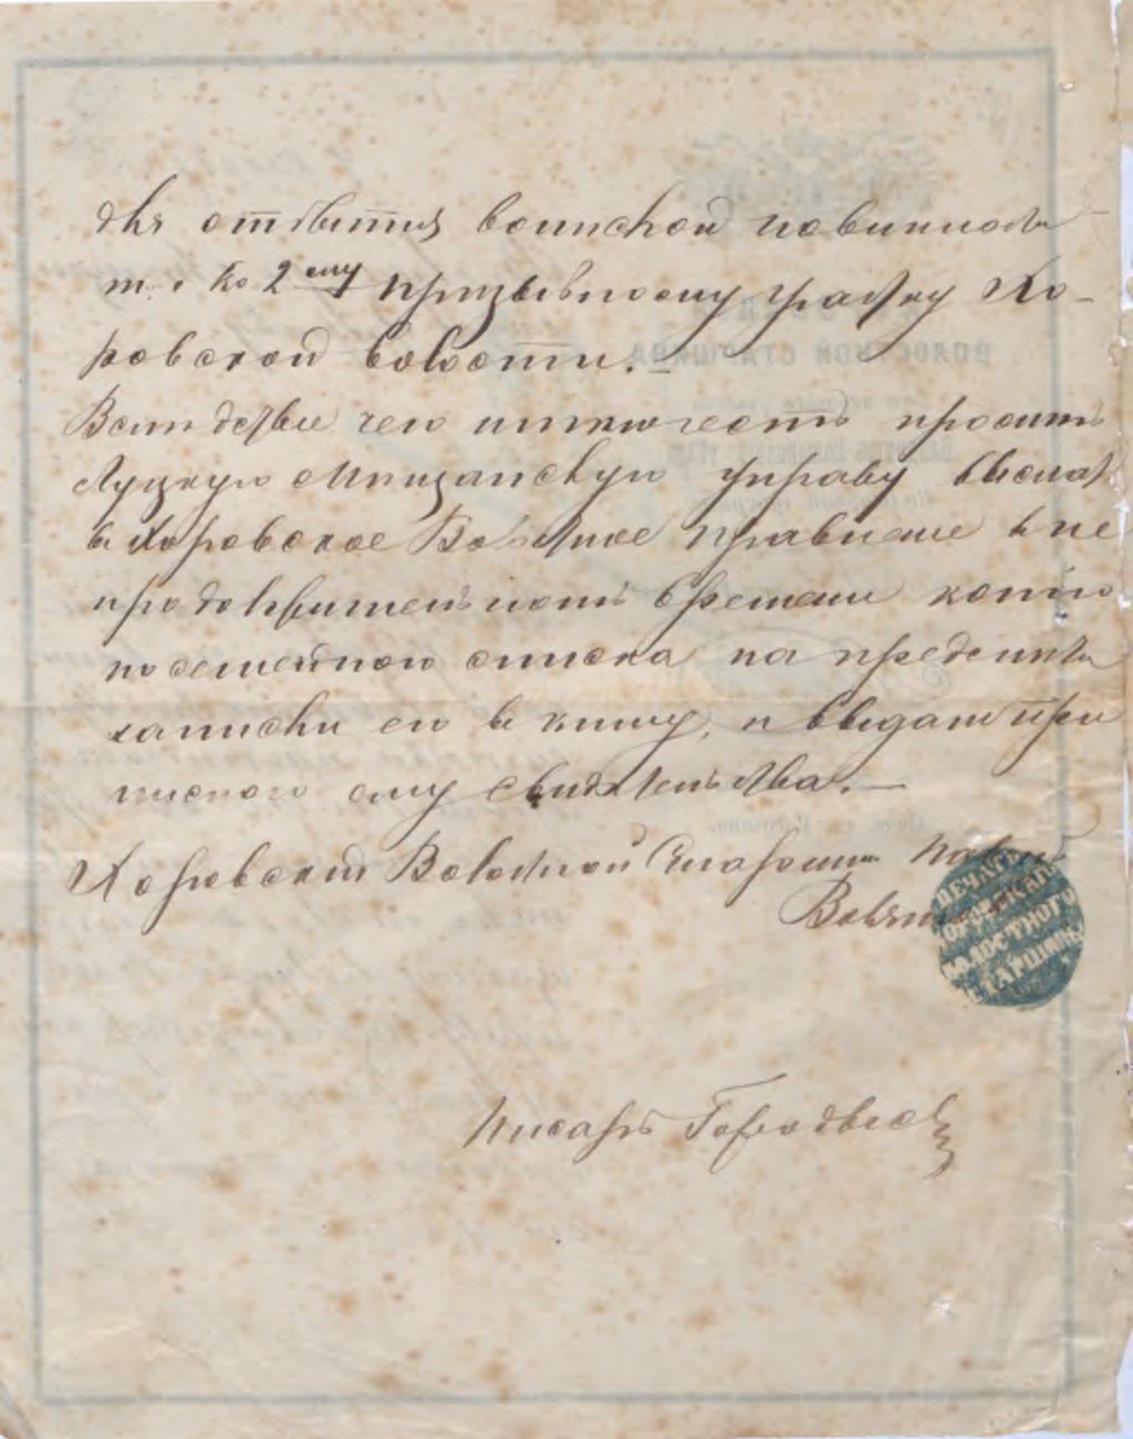 для отбытия воинской повинности
ти ко 2ому призывному участку Хо-
ровской волости.
Вслидствіе чего имею честь просить
Луцкую Мищанскую управу выслать
въ Хоровское Волостное Правление въ не
продолжительномъ времени копію
посемейного списка на предметъ
записки его въ книгу, и выдачи при
писного ему свидетельства. —
Хоровский Волостной Старшина
Писарь
ПЕЧАТЬ
ХОРОВСКАГО
ВОЛОСТНОГО
СТАРШИНЫ
ВОЛОСТНОЙ СТАРШИНА